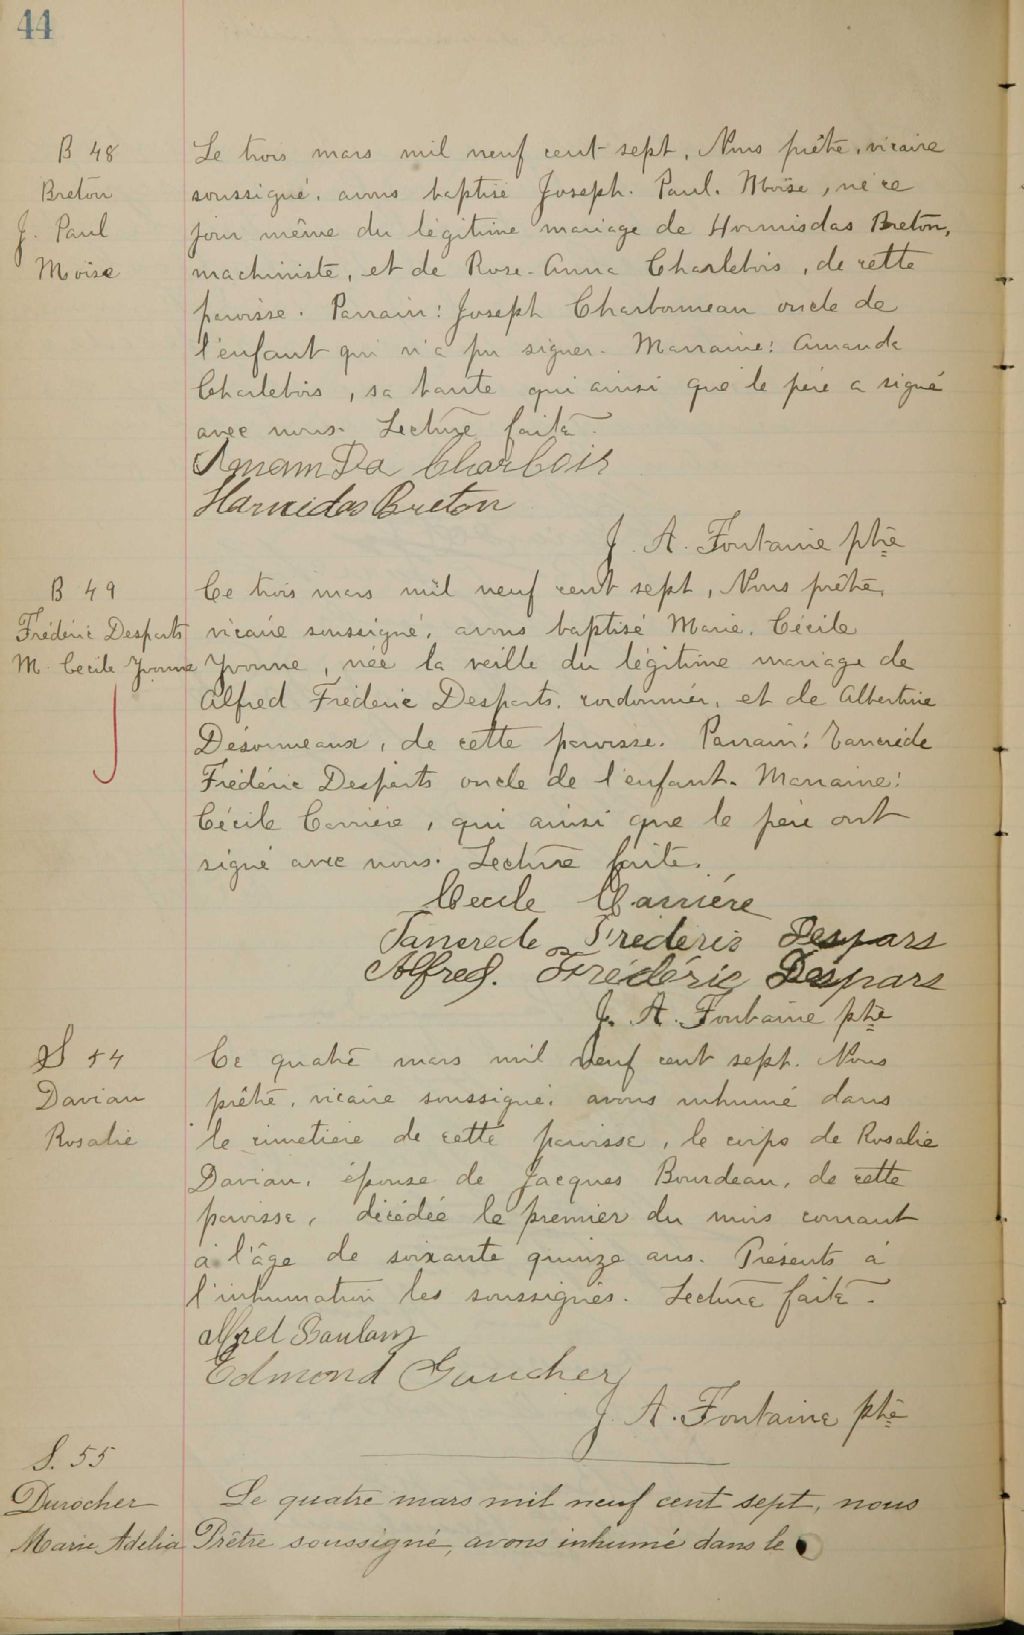 44
B 48
Breton
J. Paul
Moise
Le trois mars mil neuf cent sept, Nous prêtre, vicaire
soussigné, avons baptisé Joseph. Paul. Moïse, né ce
jour même du légitime mariage de Hormisdas Breton,
machiniste, et de Rose-Anna Charlebois, de cette
paroisse. Parrain: Joseph Charbonneau oncle de
l'enfant qui n'a pu signer. Marraine: Amanda
Charlebois, sa tante qui ainsi que le père a signé
avec nous. Lecture faite.
AmamDa CharBois
Harmidas Breton
J. A. Fontaine ptre
B 49
Frédéric Desparts
M. Cécile Yvonne
Ce trois mars mil neuf cent sept, Nous prêtre,
vicaire soussigné, avons baptisé Marie. Cécile
Yvonne, née la veille du légitime mariage de
Alfred Fréderic Desparts, cordonnier, et de Albertine
Désormeaux, de cette paroisse. Parrain: Tancrède
Frédéric Desparts oncle de l'enfant. Marraine:
Cécile Carrière, qui ainsi que le père ont
signé avec nous. Lecture faite.
Cecile Carriére
Tancrede Frederic Despars
Alfred. Frédéric Despars
J. A. Fontaine ptre
S 54
Davian
Rosalie
Ce quatre mars mil neuf cent sept. Nous
prêtre, vicaire soussigné, avons inhumé dans
le cimetière de cette paroisse, le corps de Rosalie
Davian, épouse de Jacques Bourdeau, de cette
paroisse, décédée le premier du mois courant
à l'âge de soixante quinze ans. Présents à
l'inhumation les soussignés. Lecture faite.
alfred
Edmond Gaucher
J. A. Fontaine ptre
S. 55
Durocher
Marie Adelia
Le quatre mars mil neuf cent sept, nous
Prêtre soussigné, avons inhumé dans le